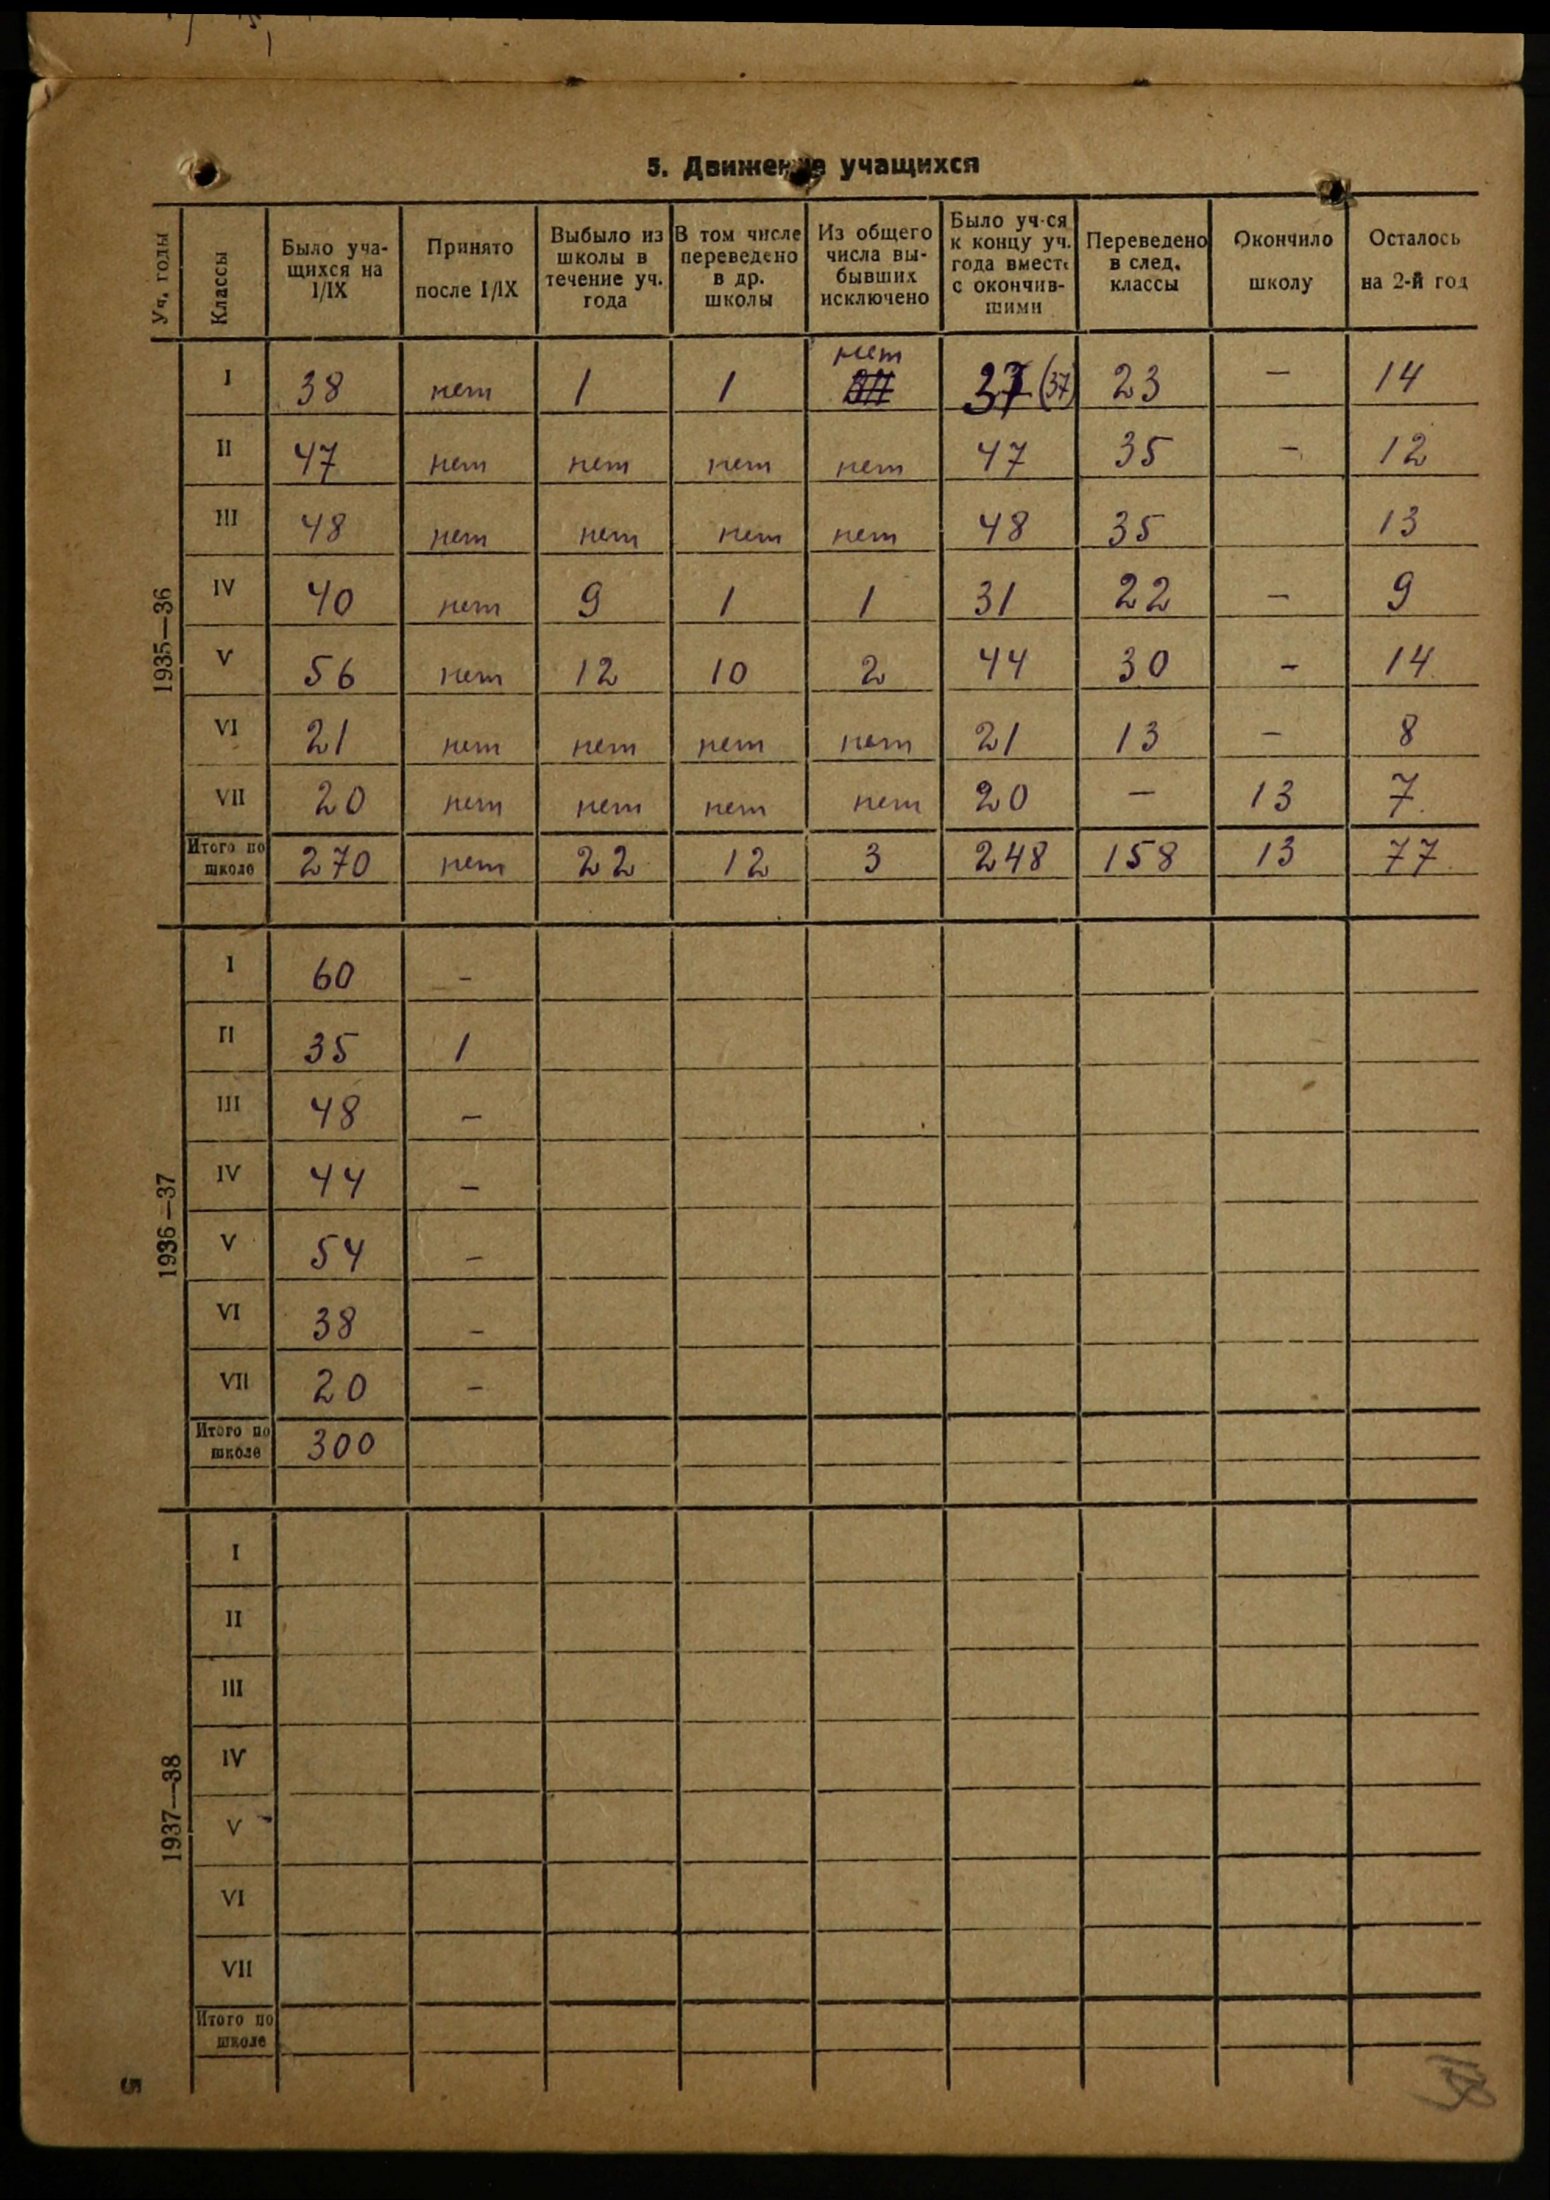 5. Движение учащихся
Уч. годы | Классы | Было уча- щихся на 1/IX | Принято после 1/IX | Выбыло из школы в течение уч. года | В том числе переведено в др. школы | Из общего числа вы- бывших исключено | Было уч-ся к концу уч. года вместе с окончив- шими | Переведено в след. классы | Окончило школу | Осталось на 2-й год
1935—36
I | 38 | нет | 1 | 1 | нет | 37 (37) | 23 | — | 14
II | 47 | нет | нет | нет | нет | 47 | 35 | — | 12
III | 48 | нет | нет | нет | нет | 48 | 35 | | 13
IV | 40 | нет | 9 | 1 | 1 | 31 | 22 | — | 9
V | 56 | нет | 12 | 10 | 2 | 44 | 30 | — | 14
VI | 21 | нет | нет | нет | нет | 21 | 13 | — | 8
VII | 20 | нет | нет | нет | нет | 20 | — | 13 | 7
Итого по школе | 270 | нет | 22 | 12 | 3 | 248 | 158 | 13 | 77
1936—37
I | 60 | —
II | 35 | 1
III | 48 | —
IV | 44 | —
V | 54 | —
VI | 38 | —
VII | 20 | —
Итого по школе | 300
1937—38
I
II
III
IV
V
VI
VII
Итого по школе
5